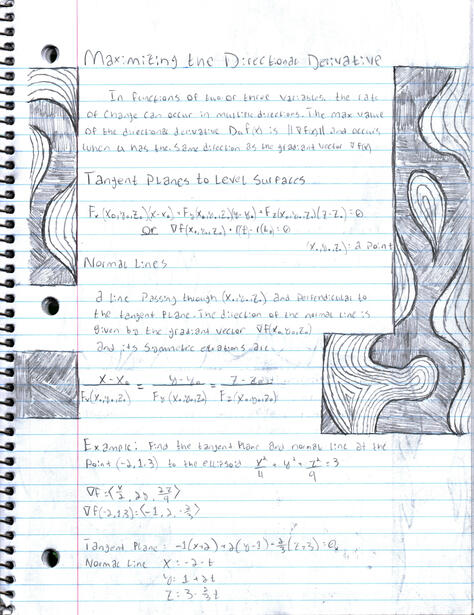 Maximizing the Directional Derivative
In functions of two or three variables, the rate
of change can occur in multiple directions. The max value
of the directional derivative Duf(x) is |∇f(x)| and occurs
when u has the same direction as the gradient vector ∇f(x)
Tangent Planes to Level Surfaces
Fx(x₀,y₀,z₀)(x-x₀)+Fy(x₀,y₀,z₀)(y-y₀)+Fz(x₀,y₀,z₀)(z-z₀)=0
or ∇F(x₀,y₀,z₀)·r(t)-r(t₀)=0
(x₀,y₀,z₀)=a Point
Normal Lines
a line Passing through (x₀,y₀,z₀) and Perpendicular to
the tangent Plane. The direction of the normal line is
given by the gradient vector ∇F(x₀,y₀,z₀)
and its Symmetric equations are
x-x₀/Fx(x₀,y₀,z₀) = y-y₀/Fy(x₀,y₀,z₀) = z-z₀/Fz(x₀,y₀,z₀)
Example: Find the tangent Plane and normal line at the
Point (-2,1,3) to the ellipsoid x²/4 + y² + z²/9 = 3
∇F=⟨x/2, 2y, 2z/9⟩
∇F(-2,1,3)=⟨-1, 2, 2/3⟩
Tangent Plane: -1(x+2)+2(y-1)+2/3(z+3)=0
Normal Line X=-2-t
y=1+2t
Z=3-2/3t